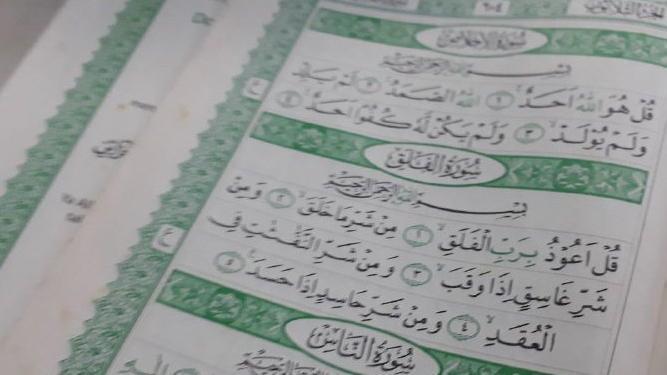 الجزء الثلاثون
٦٠٤
سورة الاخلاص
بسم الله الرحمن الرحيم
قُلْ هُوَ اللّٰهُ اَحَدٌۚ ١ اَللّٰهُ الصَّمَدُۚ ٢ لَمْ يَلِدْ
وَلَمْ يُوْلَدْۙ ٣ وَلَمْ يَكُنْ لَّهٗ كُفُوًا اَحَدٌ ٤
سورة الفلق
بسم الله الرحمن الرحيم
قُلْ اَعُوْذُ بِرَبِّ الْفَلَقِۙ ١ مِنْ شَرِّ مَا خَلَقَۙ ٢ وَمِنْ
شَرِّ غَاسِقٍ اِذَا وَقَبَۙ ٣ وَمِنْ شَرِّ النَّفّٰثٰتِ فِى
الْعُقَدِۙ ٤ وَمِنْ شَرِّ حَاسِدٍ اِذَا حَسَدَ
سورة الناس
بسم الله الرحمن الرحيم